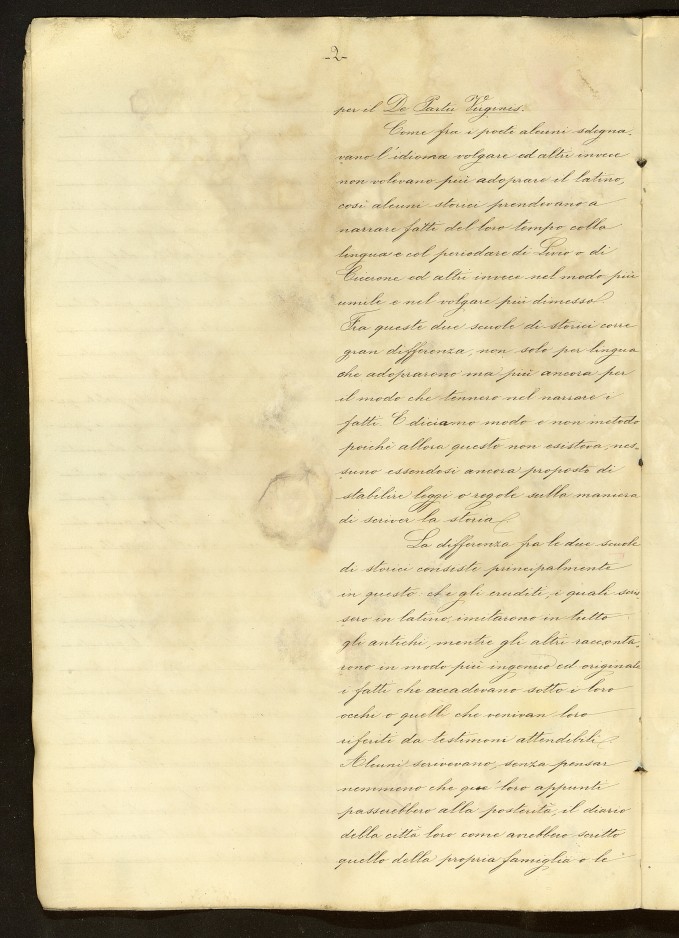 -2-
per il De Partu Virginis.
Come fra i poeti alcuni sdegna-
vano l'idioma volgare ed altri invece
non volevano più adoprare il latino,
così alcuni storici prendevano a
narrare fatti del loro tempo colla
lingua e col periodare di Livio o di
Cicerone ed altri invece nel modo più
umile e nel volgare più dimesso.
Fra queste due scuole di storici corre
gran differenza, non solo per lingua
che adoprarono ma più ancora per
il modo che tennero nel narrare i
fatti. E diciamo modo e non metodo
poichè allora questo non esisteva, nes-
suno essendosi ancora proposto di
stabilire leggi o regole sulla maniera
di scriver la storia.
La differenza fra le due scuole
di storici consiste principalmente
in questo che gli eruditi, i quali scris
sero in latino, imitarono in tutto
gli antichi, mentre gli altri racconta-
rono in modo più ingenuo ed originale
i fatti che accadevano sotto i loro
occhi o quelli che venivan loro
riferiti da testimoni attendibili.
Alcuni scrivevano, senza pensar
nemmeno che que' loro appunti
passerebbero alla posterità, il diario
della città loro come avrebbero scritto
quello della propria famiglia o le